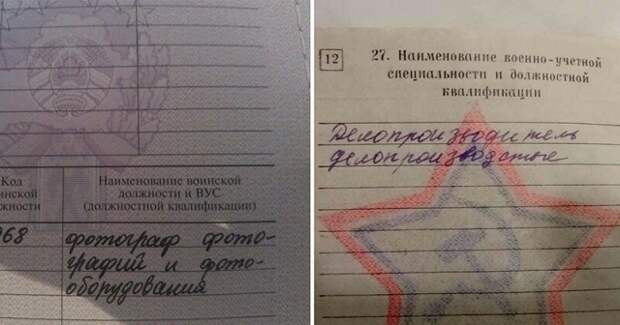 Код
инской
жности
Наименование воинской
должности и ВУС
(должностной квалификации)
968 фотограф фото-
графий и фото-
оборудования
12
27. Наименование военно-учетной
специальности и должностной
квалификации
Делопроизводитель
делопроизводстве